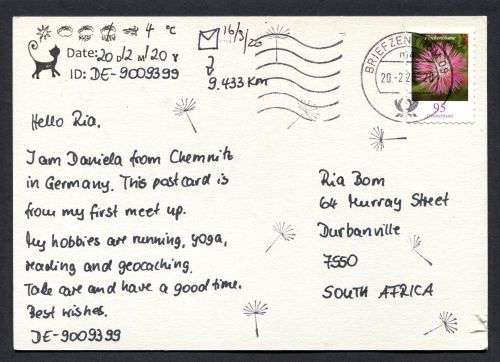 4 °C
16/3/20
Date: 20 d/2 m/20 y
ID: DE-9009399
9.433 KM
BRIEFZEN
20.-2.2
95
Hello Ria.
I am Daniela from Chemnitz
in Germany. This postcard is
from my first meet up.
My hobbies are running, yoga,
reading and geocaching.
Take care and have a good time.
Best wishes.
DE-9009399
Ria Bom
64 Murray Street
Durbanville
7550
SOUTH AFRICA